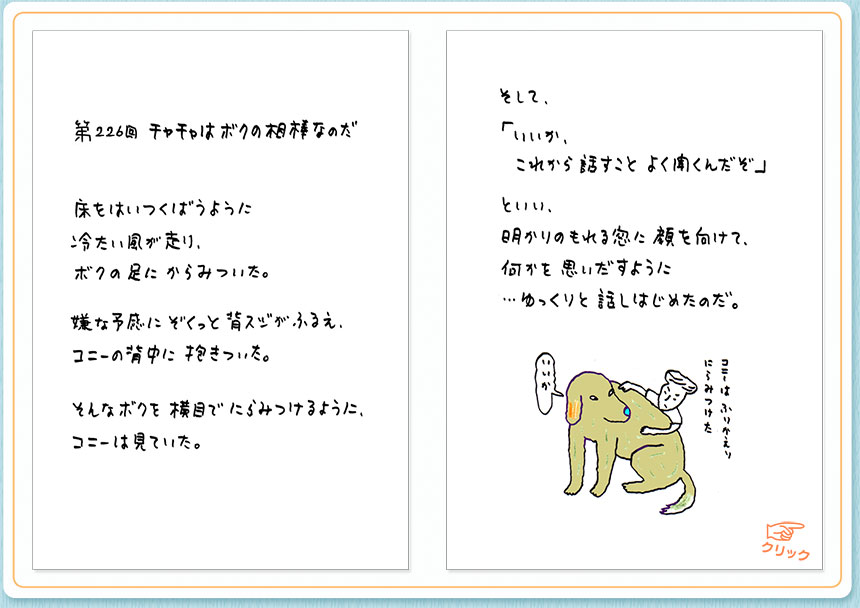 第226回 チャチャはボクの相棒なのだ
床をはいつくばうように
冷たい風が走り、
ボクの足に からみついた。
嫌な予感に ぞくっと 背スジがふるえ、
コニーの背中に 抱きついた。
そんなボクを 横目で にらみつけるように、
コニーは見ていた。
そして、
「いいか、
これから 話すこと よく聞くんだぞ」
といい、
明かりのもれる窓に 顔を向けて、
何かを 思いだすように
…ゆっくりと 話しはじめたのだ。
いいか
コニーは ふりかえり
にらみつけた
クリック